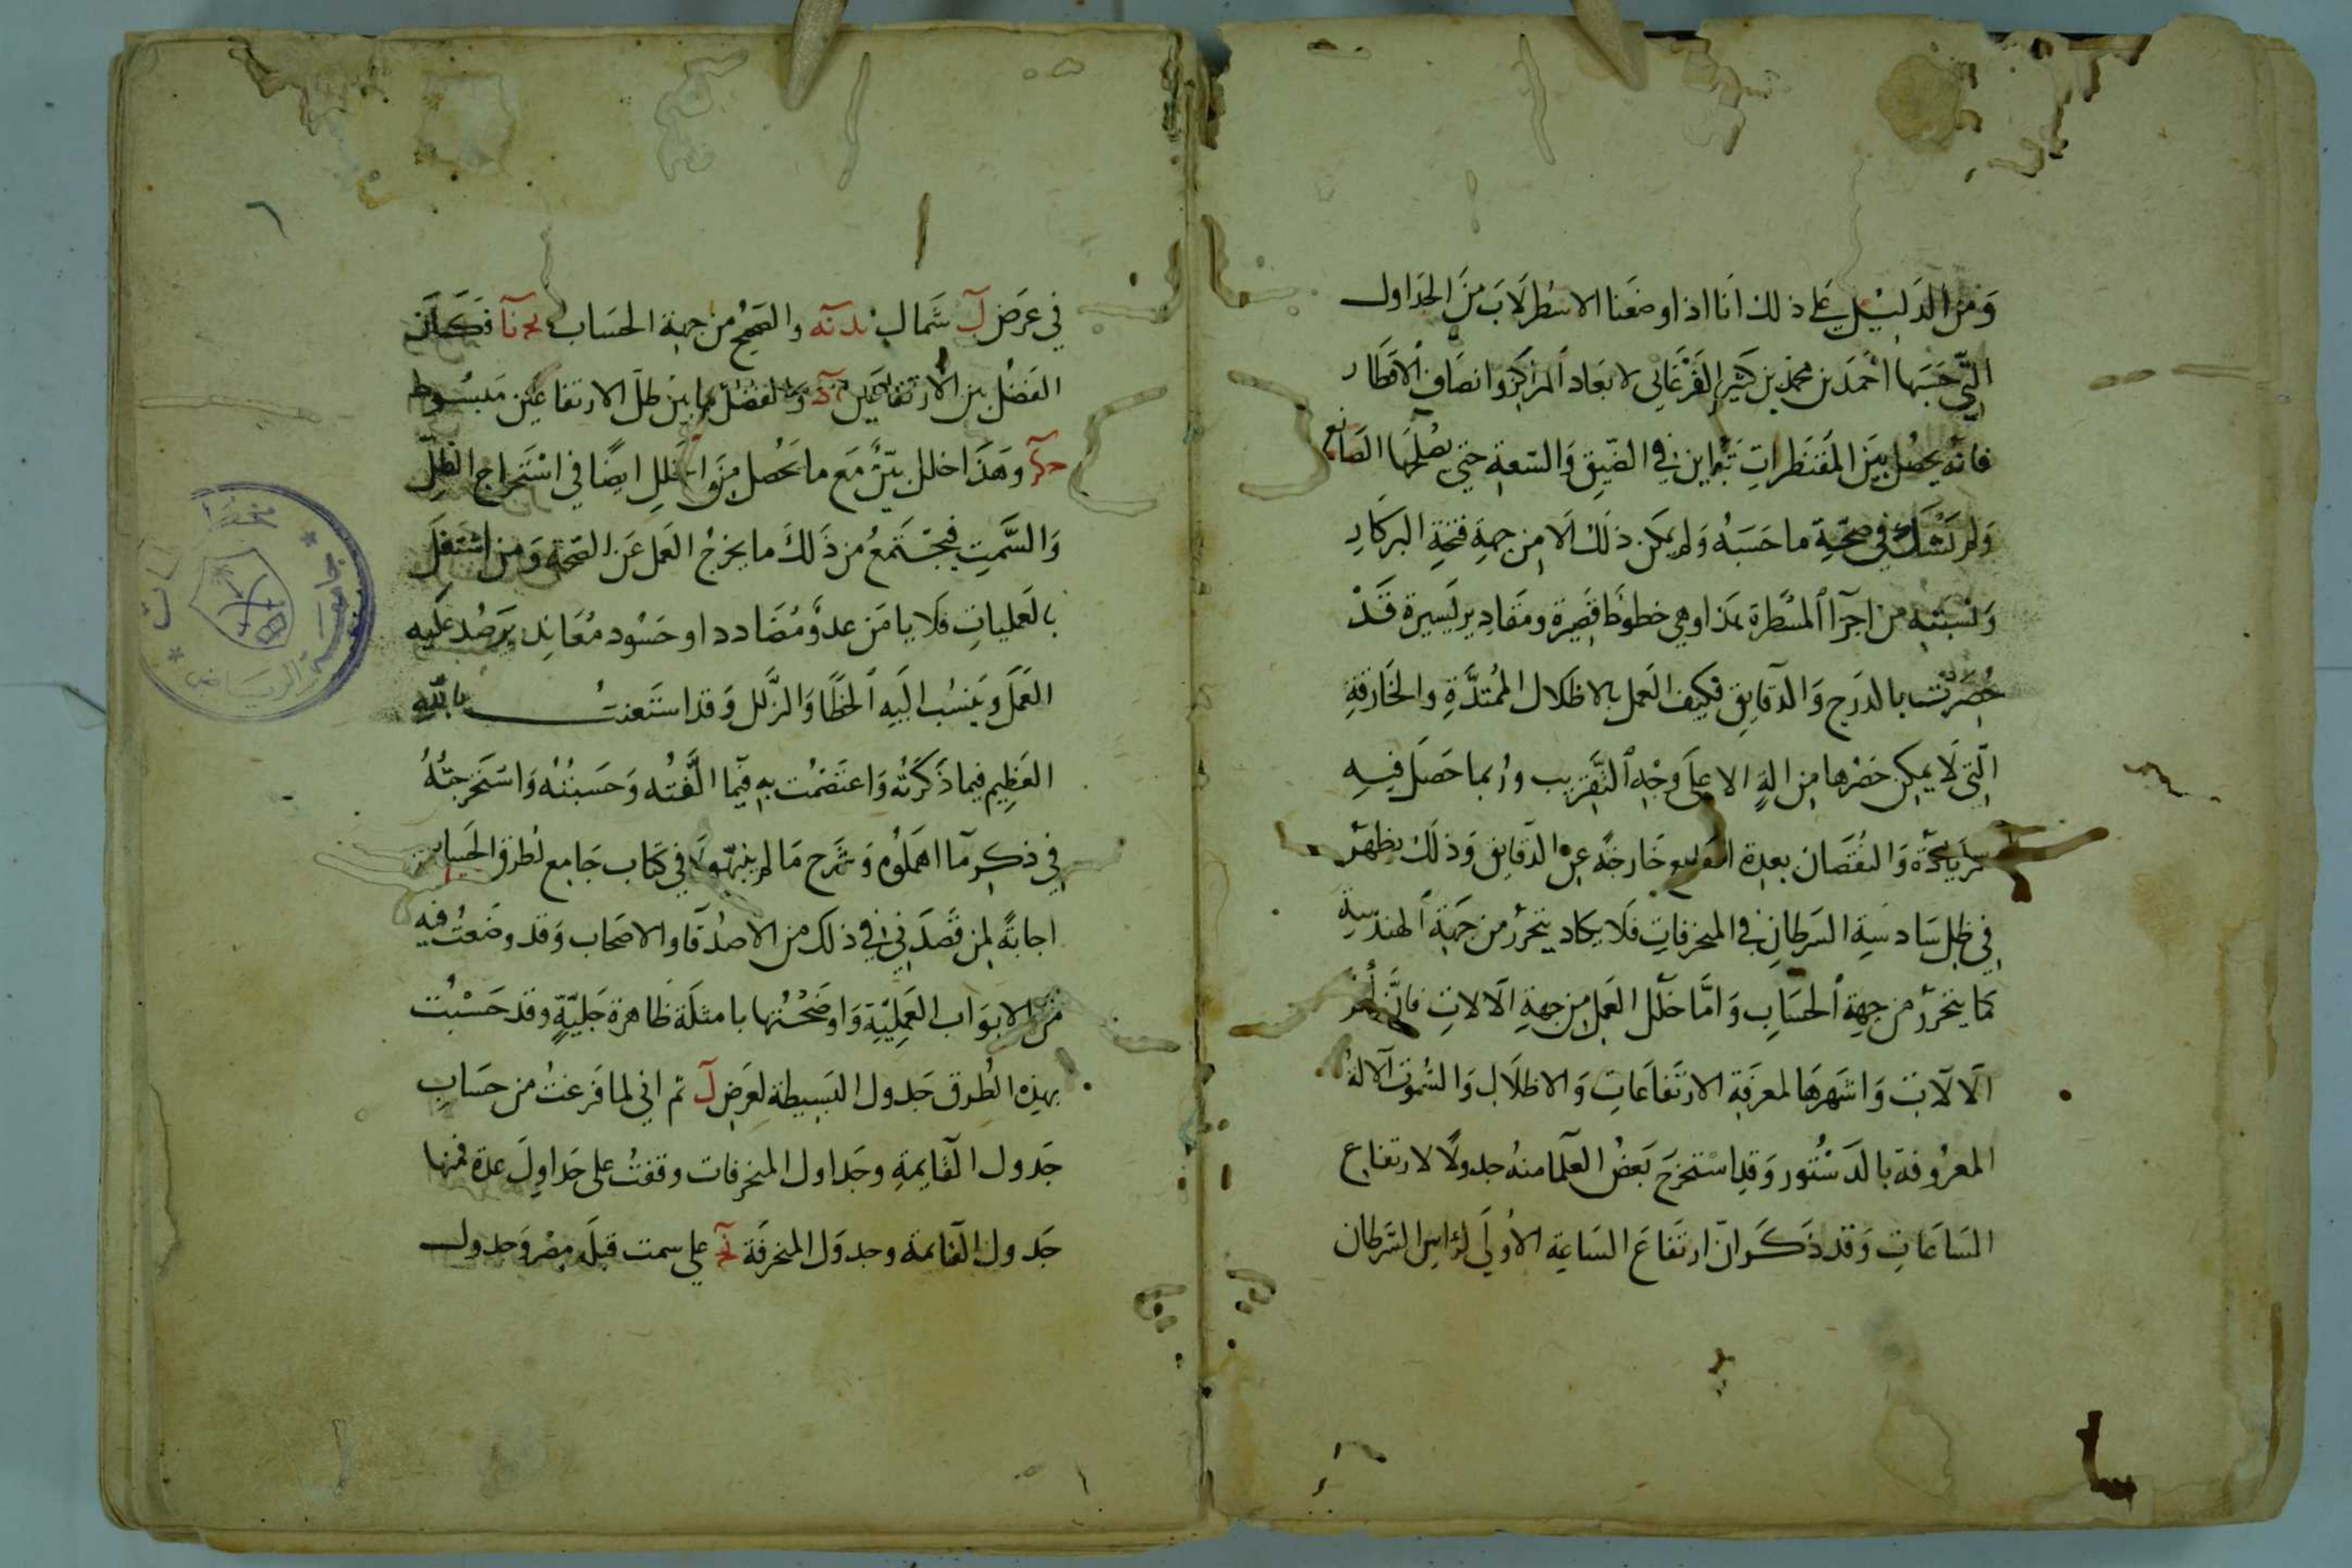 وَمِنَ الدَليْل عَلى ذلك انَا اذا وضَعنا الاسْطرلَابَ مِنَ الجَداول
التّي حَسَبَها احْمَد بن محمّد بن كَثير الفَرْغَانِى لابعَاد المرَاكز وانصَاف الاقطَار
فانّه يحصُل بَيَن المقنطَراتِ تَباين في الضّيِق وَالسّعةِ حتى يصْلحَها الصَانع
وَلم نَشك في صحّةِ ما حَسَبَهُ وَلم يكن ذلكَ الّا مِن جهةِ فتحةِ البركَارِ
وَنسْبتهِ من اجزآ المسْطرة هَذا وهي خطوطَا قصِيَرة ومقَادير يَسيرة قَدْ
حُصِرَتْ بالدرَج وَالدقايِق فكيَف العَمل بالاظلال المُمتدَّةِ والخَارقةِ
التّي لَا يمكِن حَصْرها مِن الةٍ الا علَى وجْهِ التَّقريب وربما حَصَل فيهِ
الزيَادَة وَالنقصَان بعدة اصَابع خَارجَةً عن الدقايق وَذلكَ يظهَر
في ظِل سَادسَةِ السَرطانِ في المنحرفاتِ فلَا يكاد يتحررُ من جهَةِ الهندسَةِ
كمَا يتحررُ من جهةِ الحسَابِ وَامَّا خلَل العَمل مِن جهةِ الالاتِ فانَّ
الَالَاتِ وَاشهرهَا لمعرفَةِ الارتفَاعَاتِ وَالاظلَالِ وَالسُموتِ الآلةُ
المعرُوفة بالدَسْتُور وَقد استخرَجَ بَعضُ العلَما منهُ جدولًا لارتفاع
السَاعَاتِ وَقد ذكَر انّ ارتفَاعَ السَاعةِ الاولَى لرَاسِ السَرطان
في عرَض لَ شَمال ىد نه والصحيحُ من جهةِ الحسَاب نا فكَان
الفَضْل بين الارتفاعَين وَالفضْل ما بين ظلّ الارتفاعَين مَبسُوط
وهَذا خلل بيّنٌ مَع ما يحَصُل مِنَ الخَللِ ايضًا في اسْتخراج الظلّ
وَالسَّمتِ فيجْتَمعُ من ذَلكَ ما يخرجُ العَمل عَن الصّحةِ وَمن اشْتغَل
بالعَمليات فلَا يامَن عدوَّ مُضَادد او حَسُود مُعَاند يرصُد عليه
العَمَل وَينسُب اليهِ الخطَأ وَالزَّلل وَقد استَعنتُ باللهِ
العَظِيم فيما ذَكَرتُه وَاعتصَمْت به فيما الَّفتُه وَحَسبتُه وَاستخرجتُهُ
في ذكرِ مَا اهملُوه وَشرح مَا لم يبيّنوهُ في كتاب جَامع لطرق الحِسَاب
اجابةً لمن قَصدَني في ذلكَ من الاصدقَا والاصحَاب وَقد وضَعتُ فيهِ
مَن الابوَاب العَمليّةِ وَاوضَحْتُها بامثلَة ظَاهرة جَليّةٍ وقد حَسَبْت
بهذه الطُرق جَدول البَسِيطةِ لعَرضِ لَ ثم اني لما فَرغتُ من حسَابِ
جَدول القَايمةِ وجَداول المنحرفات وقفتُ على جَداولَ عدة فمنها
جَدول القَايمة وجدوَل المنحرفَة على سمت قبلَه مِصْر وَجدول